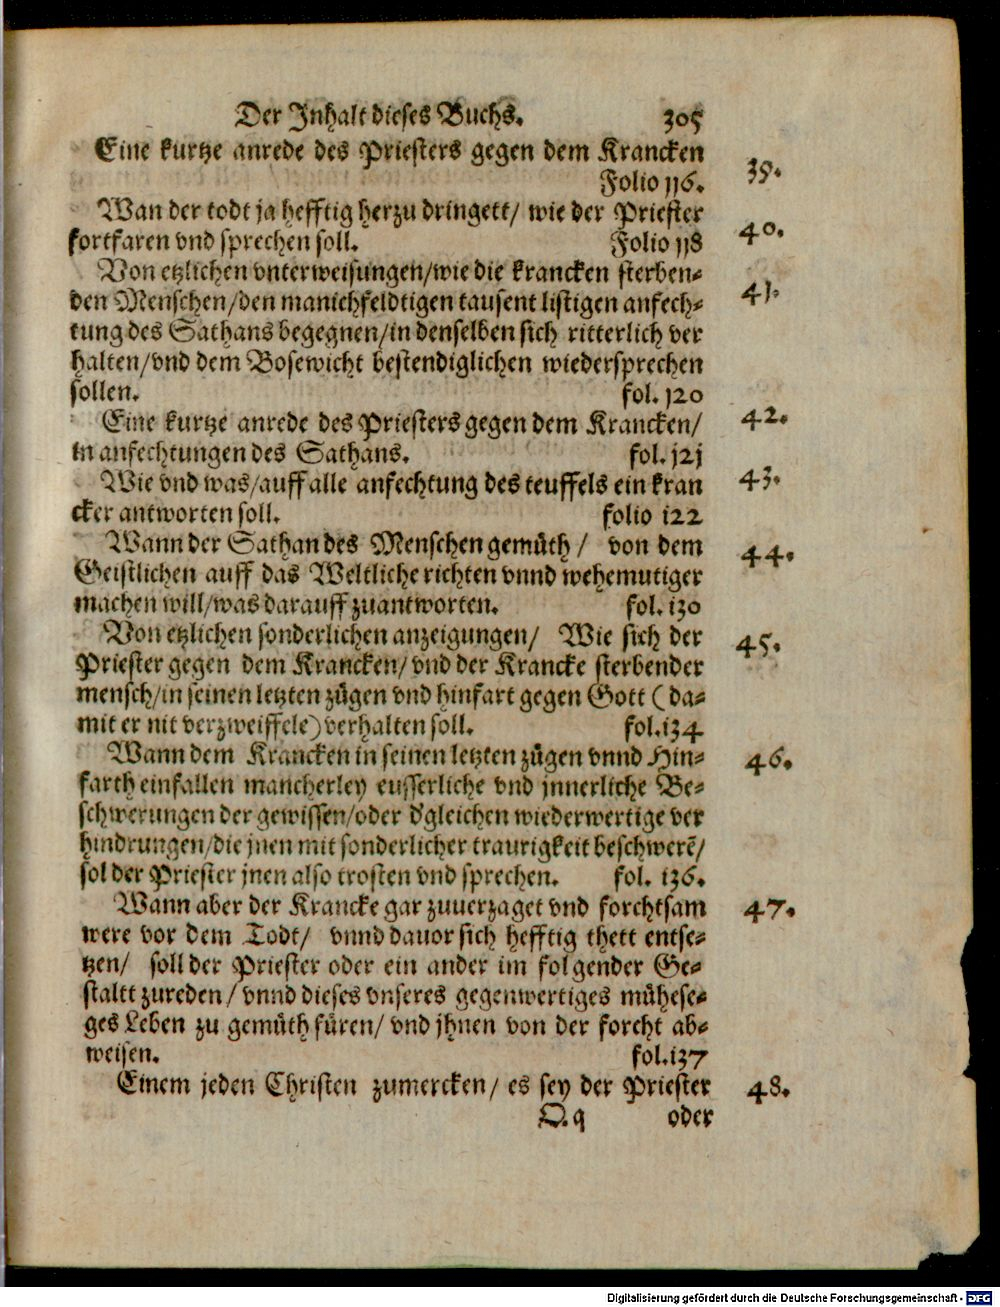 Der Inhalt dieses Buchs. 305
Eine kurtze anrede des Priesters gegen dem Krancken
Folio 116. 39.
Wan der todt ja hefftig herzu dringett/ wie der Priester
fortfaren vnd sprechen soll. Folio 118 40.
Von etzlichen vnterweisungen/wie die krancken sterben-
den Menschen/den manichfeldtigen tausent listigen anfech- 41.
tung des Sathans begegnen/in denselben sich ritterlich ver
halten/vnd dem Bosewicht bestendiglichen wiedersprechen
sollen. fol. 120
Eine kurtze anrede des Priesters gegen dem Krancken/ 42.
in anfechtungen des Sathans. fol. 121
Wie vnd was/auff alle anfechtung des teuffels ein kran 43.
cker antworten soll. folio 122
Wann der Sathan des Menschen gemüth / von dem 44.
Geistlichen auff das Weltliche richten vnnd wehemutiger
machen will/was darauff zuantworten. fol. 130
Von etzlichen sonderlichen anzeigungen/ Wie sich der 45.
Priester gegen dem Krancken/vnd der Krancke sterbender
mensch/in seinen letzten zügen vnd hinfart gegen Gott (da-
mit er nit verzweiffele) verhalten soll. fol.134
Wann dem Krancken in seinen letzten zügen vnnd Hin- 46.
farth einfallen mancherley eusserliche vnd jnnerliche Be-
schwerungen der gewissen/oder d'gleichen wiederwertige ver
hindrungen/die jnen mit sonderlicher traurigkeit beschwerē/
sol der Priester jnen also trosten vnd sprechen. fol. 136.
Wann aber der Krancke gar zuuerzaget vnd forchtsam 47.
were vor dem Todt/ vnnd dauor sich hefftig thett entse-
tzen/ soll der Priester oder ein ander im folgender Ge-
staltt zureden/vnnd dieses vnseres gegenwertiges mühese-
ges Leben zu gemüth füren/ vnd jhnen von der forcht ab-
weisen. fol.137
Einem jeden Christen zumercken/ es sey der Priester 48.
Q.q oder
Digitalisierung gefördert durch die Deutsche Forschungsgemeinschaft - DFG